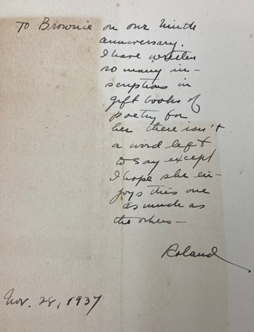 To Brownie on our ninth
anniversary.
I have written
so many in-
scriptions in
gift books of
poetry for
her there isn't
a word left
to say except
I hope she en-
joys this one
as much as
the others—
Roland
Nov. 28, 1937